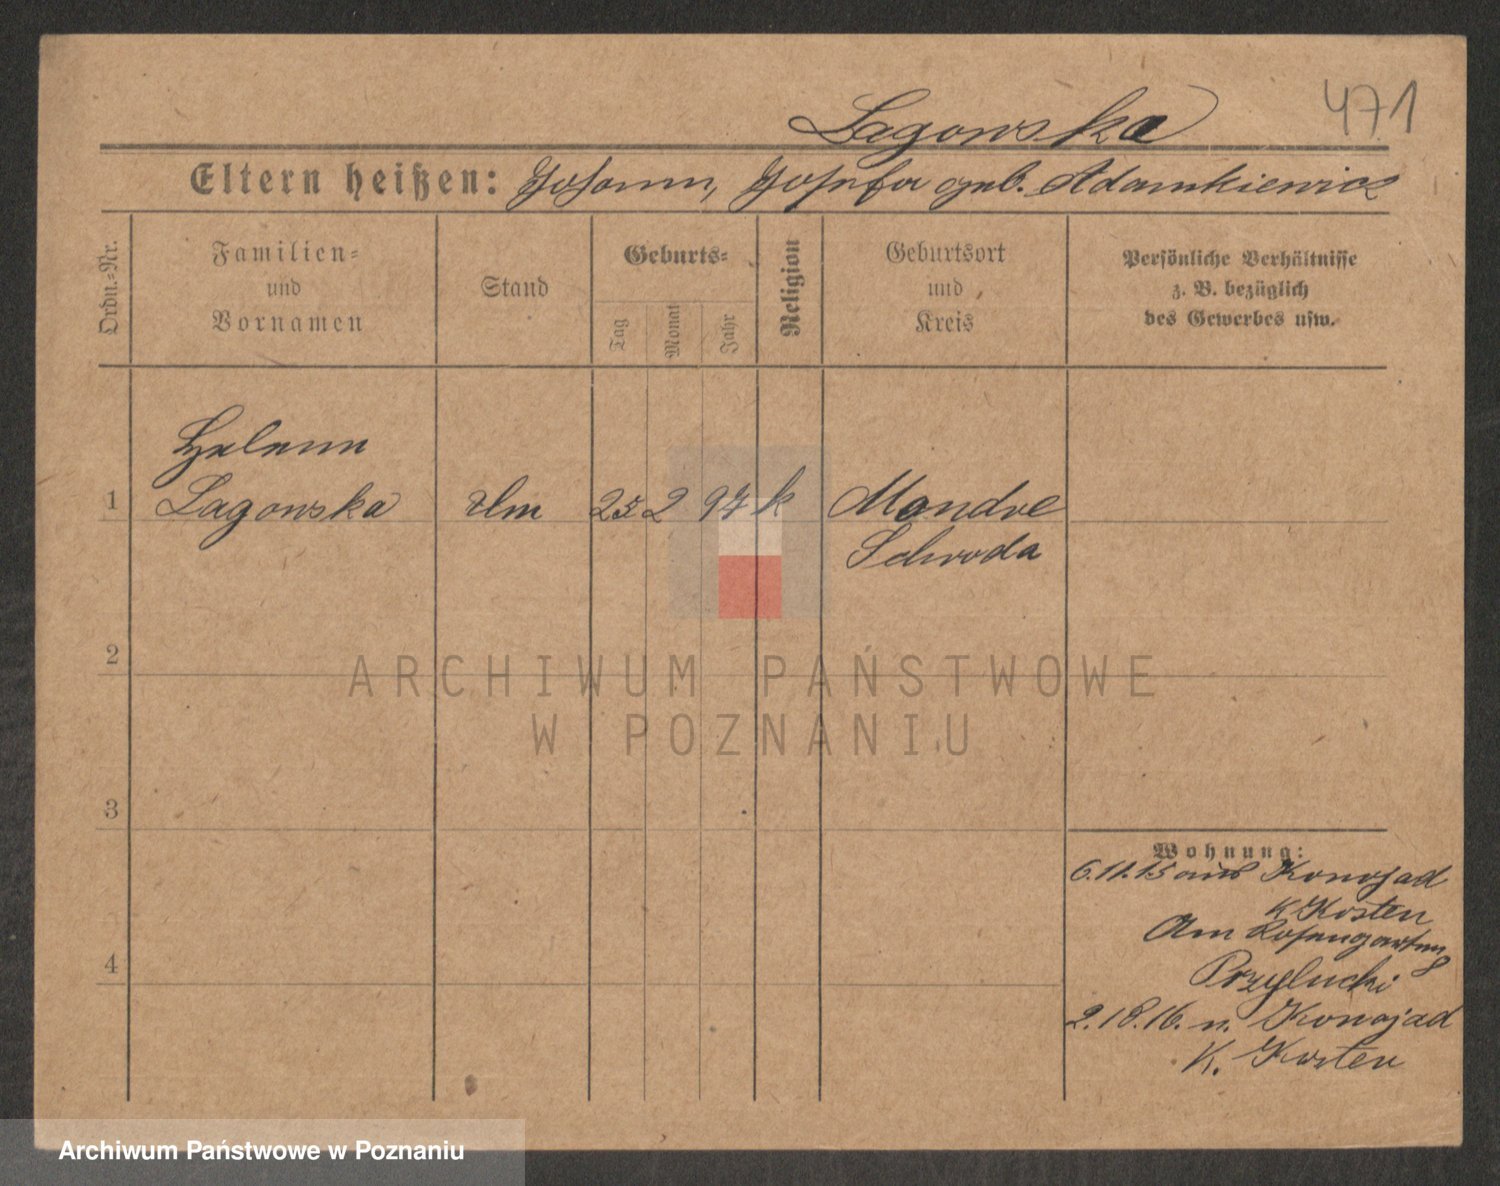 Lagowska
471
Eltern heißen: Johann, Josefa geb. Adamkiewicz
Ordn.-Nr.
Familien-
und
Vornamen
Stand
Geburts-
Tag
Monat
Jahr
Religion
Geburtsort
und
Kreis
Persönliche Verhältnisse
z. B. bezüglich
des Gewerbes usw.
Helene
1 Lagowska 25 2 97 k Mondre
Schroda
2
3
4
Wohnung:
6.11.15 aus Konojad
K Kosten
Am Rosengarten
8
Przylucki
2.18.16. n. Konojad
K. Kosten
ARCHIWUM PAŃSTWOWE
W POZNANIU
Archiwum Państwowe w Poznaniu